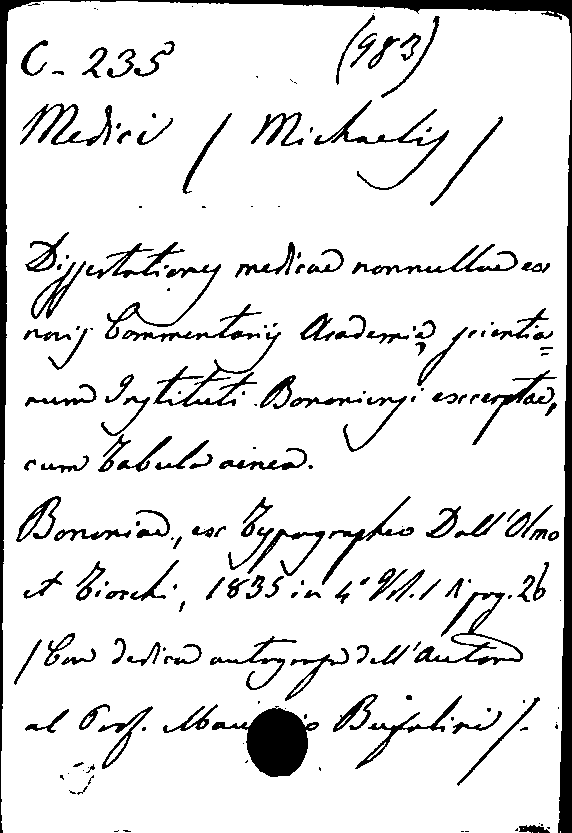 C- 235 (983)
Medici / Michaelis /
Dissertationes medicae nonnullae ex
novis Commentariis Academiæ scientia=
rum Instituti Bononiensi excerptae,
cum Tabula aenea.
Bononiae, ex Typographeo Dall'Olmo
et Tiocchi, 1835 in 4° Vol. 1 di pag. 26
/ Con dedica autografa dell'Autore
al Prof. Maurizio Bufalini /.